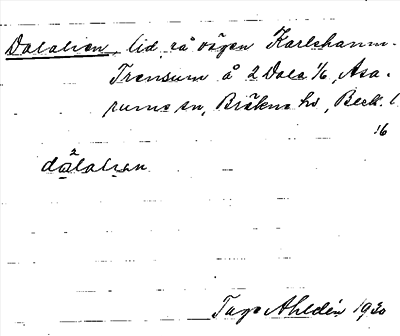 Dalalien, lid på vägen Karlshamn-
Trensum å 2 Dala 1/6, Asa-
rums sn, Bräkne hd, Blek. l
16
2
dälalien
Tage Ahldén 1930